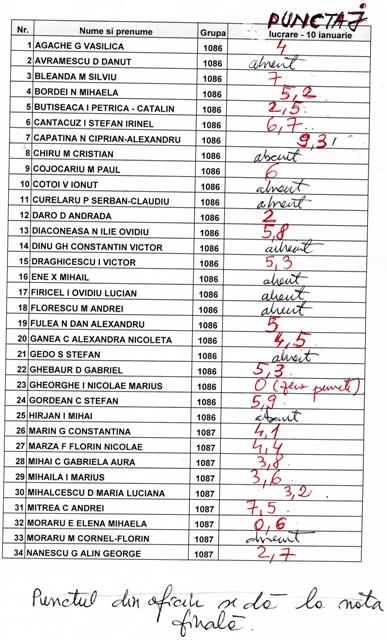 PUNCTAJ
Nr. Nume si prenume Grupa lucrare - 10 ianuarie
1 AGACHE G VASILICA 1086 4
2 AVRAMESCU D DANUT 1086 absent
3 BLEANDA M SILVIU 1086 7
4 BORDEI N MIHAELA 1086 5,2
5 BUTISEACA I PETRICA - CATALIN 1086 2,5
6 CANTACUZ I STEFAN IRINEL 1086 6,7
7 CAPATINA N CIPRIAN-ALEXANDRU 1086 9,3
8 CHIRU M CRISTIAN 1086 absent
9 COJOCARIU M PAUL 1086 6
10 COTOI V IONUT 1086 absent
11 CURELARU P SERBAN-CLAUDIU 1086 absent
12 DARO D ANDRADA 1086 2
13 DIACONEASA N ILIE OVIDIU 1086 5,8
14 DINU GH CONSTANTIN VICTOR 1086 absent
15 DRAGHICESCU I VICTOR 1086 5,3
16 ENE X MIHAIL 1086 absent
17 FIRICEL I OVIDIU LUCIAN 1086 absent
18 FLORESCU M ANDREI 1086 absent
19 FULEA N DAN ALEXANDRU 1086 5
20 GANEA C ALEXANDRA NICOLETA 1086 4,5
21 GEDO S STEFAN 1086 absent
22 GHEBAUR D GABRIEL 1086 5,3
23 GHEORGHE I NICOLAE MARIUS 1086 0 (zero puncte)
24 GORDEAN C STEFAN 1086 5,9
25 HIRJAN I MIHAI 1086 absent
26 MARIN G CONSTANTINA 1087 4,1
27 MARZA F FLORIN NICOLAE 1087 4,4
28 MIHAI C GABRIELA AURA 1087 3,8
29 MIHAILA I MARIUS 1087 3,6
30 MIHALCESCU D MARIA LUCIANA 1087 3,2
31 MITREA C ANDREI 1087 7,5
32 MORARU E ELENA MIHAELA 1087 0,6
33 MORARU M CORNEL-FLORIN 1087 absent
34 NANESCU G ALIN GEORGE 1087 2,7
Punctul din oficiu se dă la nota
finală.